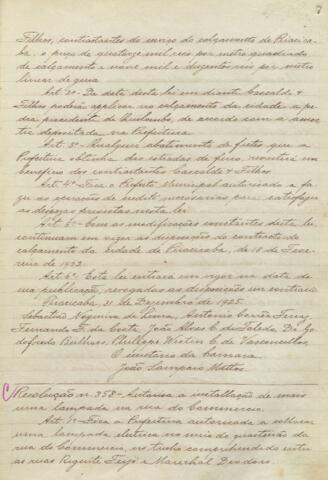 7
Filhos, contratantes do serviço do calçamento de Piracica-
ba, o preço de quatorze mil reis por metro quadrado
de calçamento e nove mil e duzentos reis por metro
linear de guia.
Art. 2º - Da data desta lei em diante Cascaldi &
Filhos poderão applicar no calçamento da cidade a pe-
dra procedente de, de accordo com a amos-
tra depositada na Prefeitura.
Art. 3º - Qualquer abatimento de fretes que a
Prefeitura obtenha das estradas de ferro, reverterá em
beneficio dos contractantes Cascaldi & Filhos.
Art. 4º - Fica o Prefeito Municipal autorisado a fa-
zer as operações de credito necessarias para satisfazer
as despezas previstas nesta lei.
Art. 5º - Com as modificações constantes desta lei,
continuam em vigor as disposições do contracto de
calçamento da cidade de Piracicaba, de 18 de Feve-
reiro de 1922.
Art. 6º - Esta lei entrará em vigor na data de
sua publicação, revogadas as disposições em contrario.
Piracicaba, 31 de Dezembro de 1925.
Sebastião Nogueira de Lima, Antonio Corrêa Ferraz,
Fernando F. da Costa, João Alves C. de Toledo, Dr. Go-
dofredo Bulhões, Philippe Westin C. de Vasconcellos.
O secretario da Camara
João Sampaio Mattos
Resolução n. 358 - Autorisa a installação de mais
uma lampada na rua do Commercio.
Art. 1º - Fica a Prefeitura autorisada a collocar
uma lampada electrica no meio do quarteirão da
rua do Commercio, no trecho comprehendido entre
as ruas Regente Feijó e Marechal Deodoro.